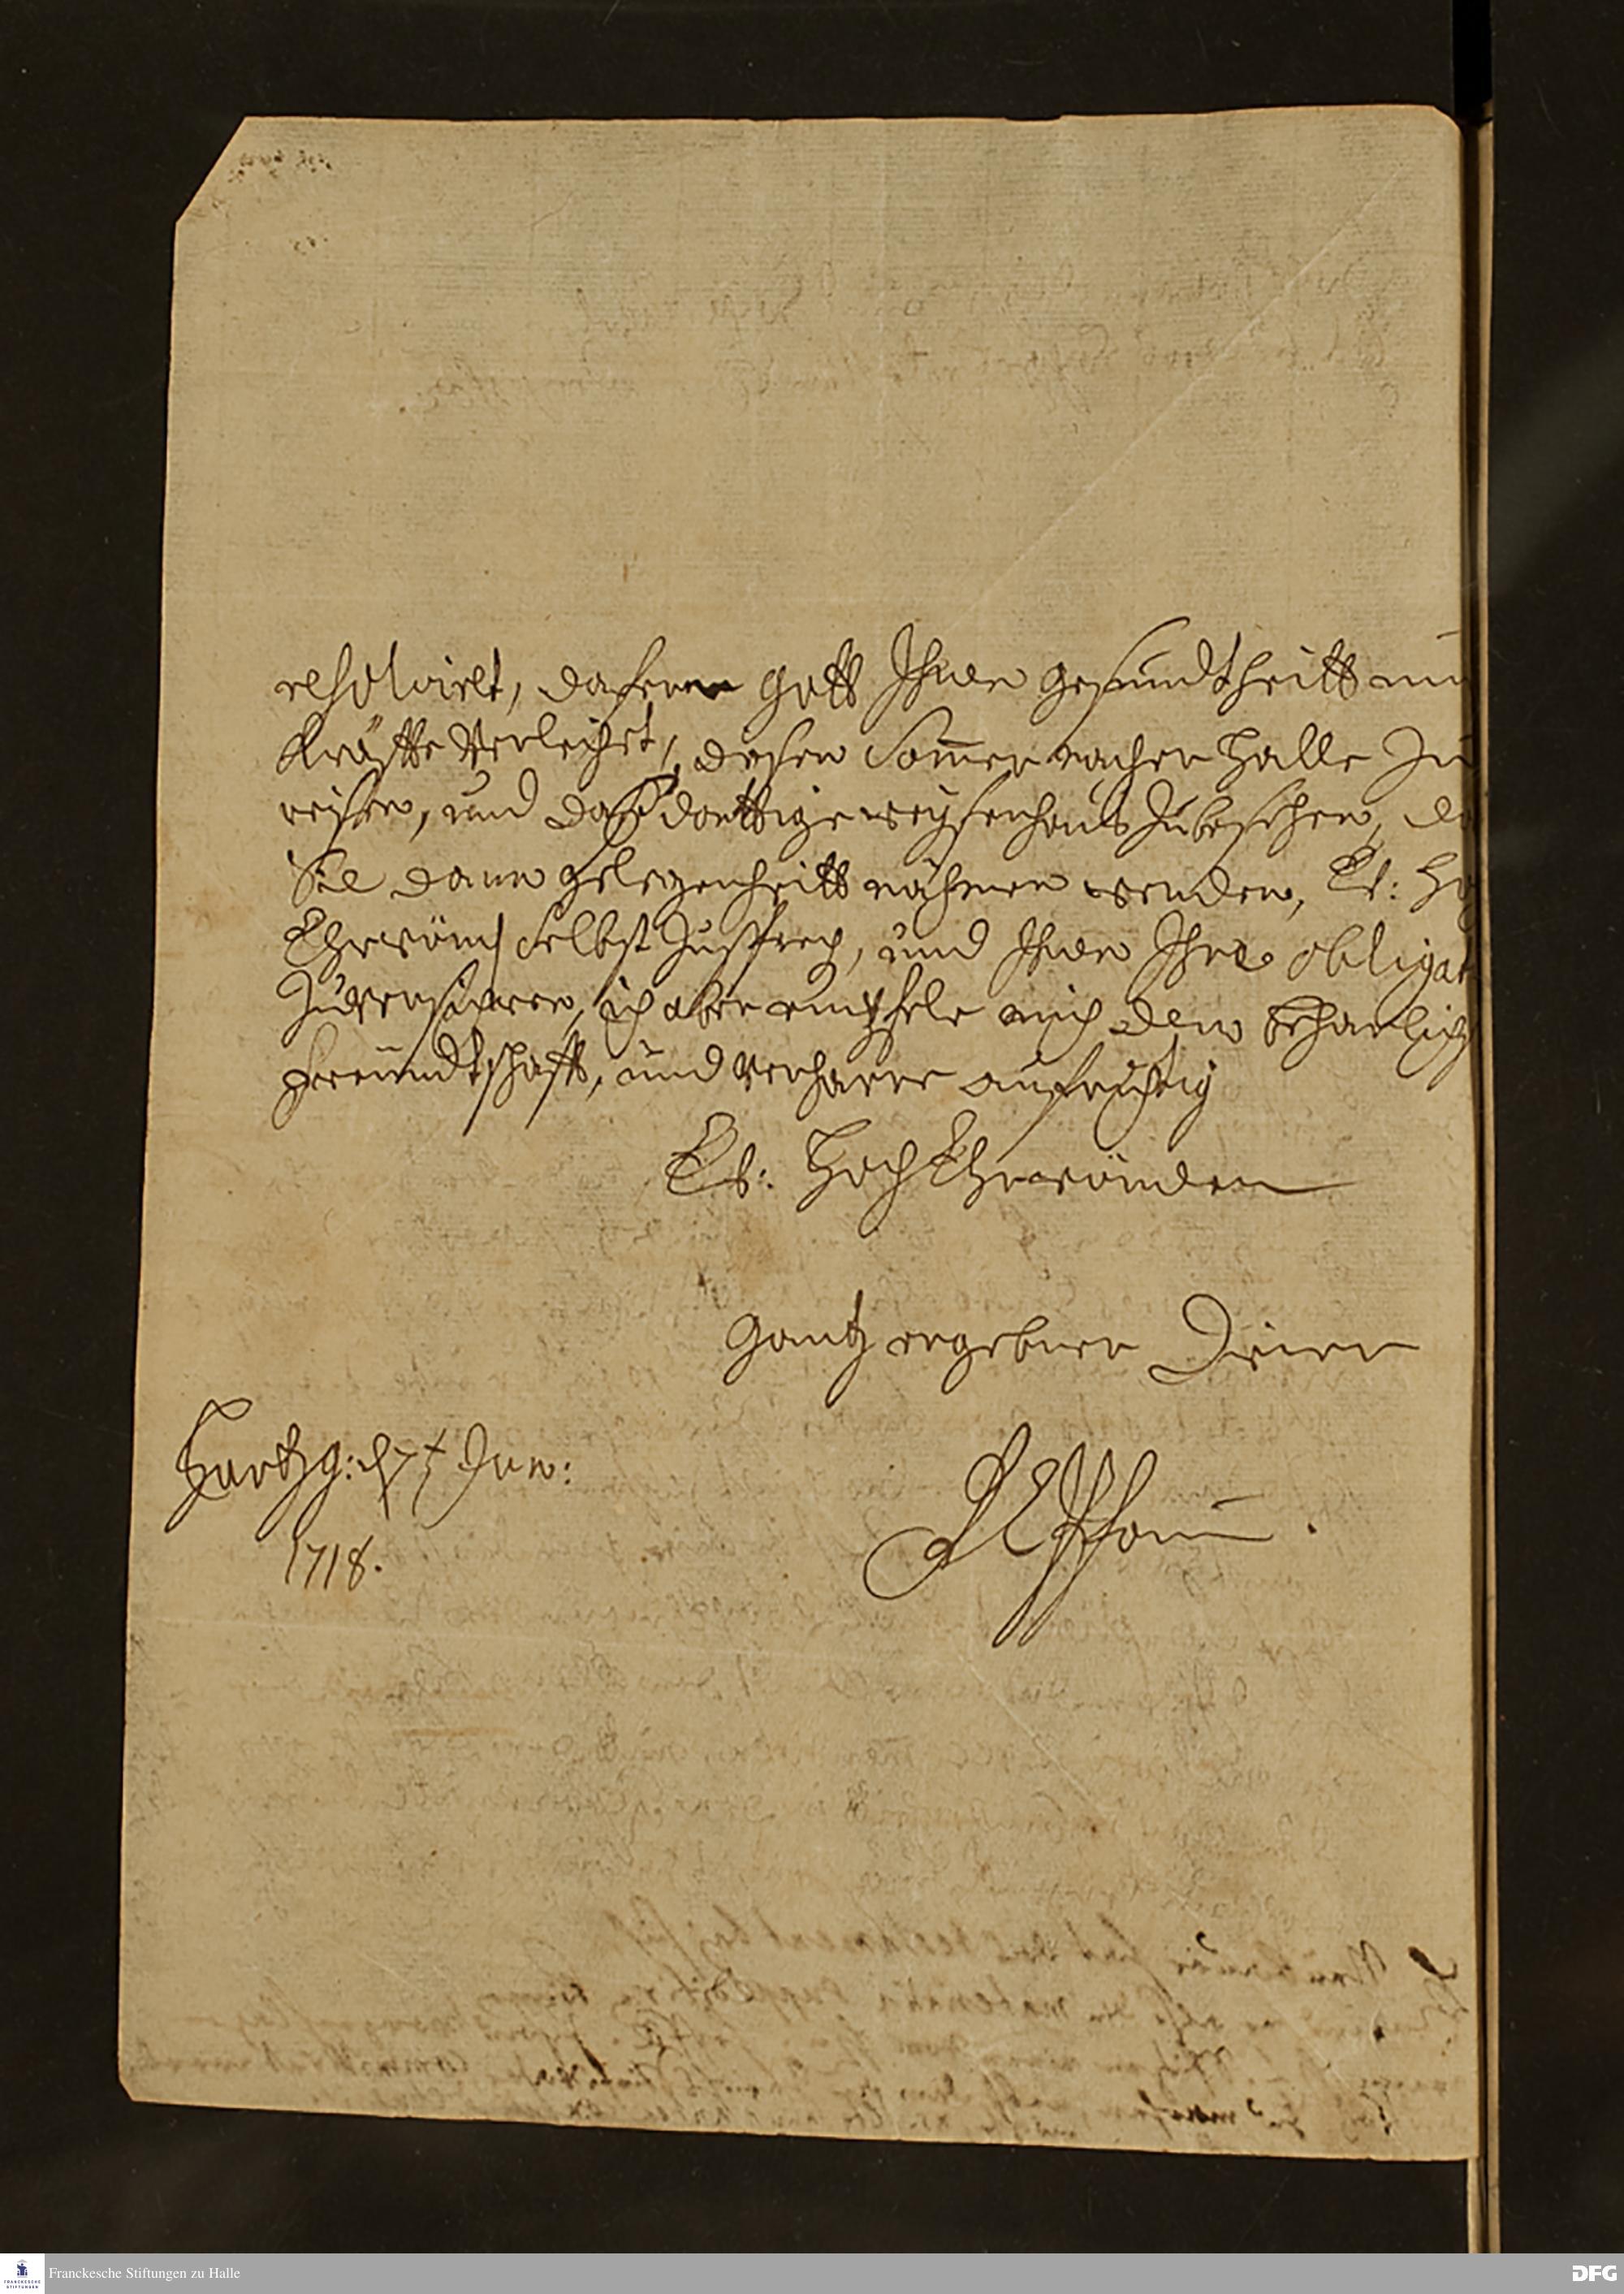 resolviret, dafern Gott Ihnen gesundtheitt un
Kräffte Verleihet, diesen Sommer nacher Halle Zu
reisen, und daß dorttige weysenhaus Zubesehen, da
Sie dann gelegenheitt nähmen werden, Ew: Ho
Ehrwürd selbst Zusprech, und Ihnen Ihre obligat
Zuversichern, ich aber empfele mich dero beharlich
freundtschafft, und verharre aufrichtig
Ew: HochEhrwürden
gantz ergebner Diener
Hartzg: d 7t Jun:
1718.
Franckesche Stiftungen zu Halle
DFG